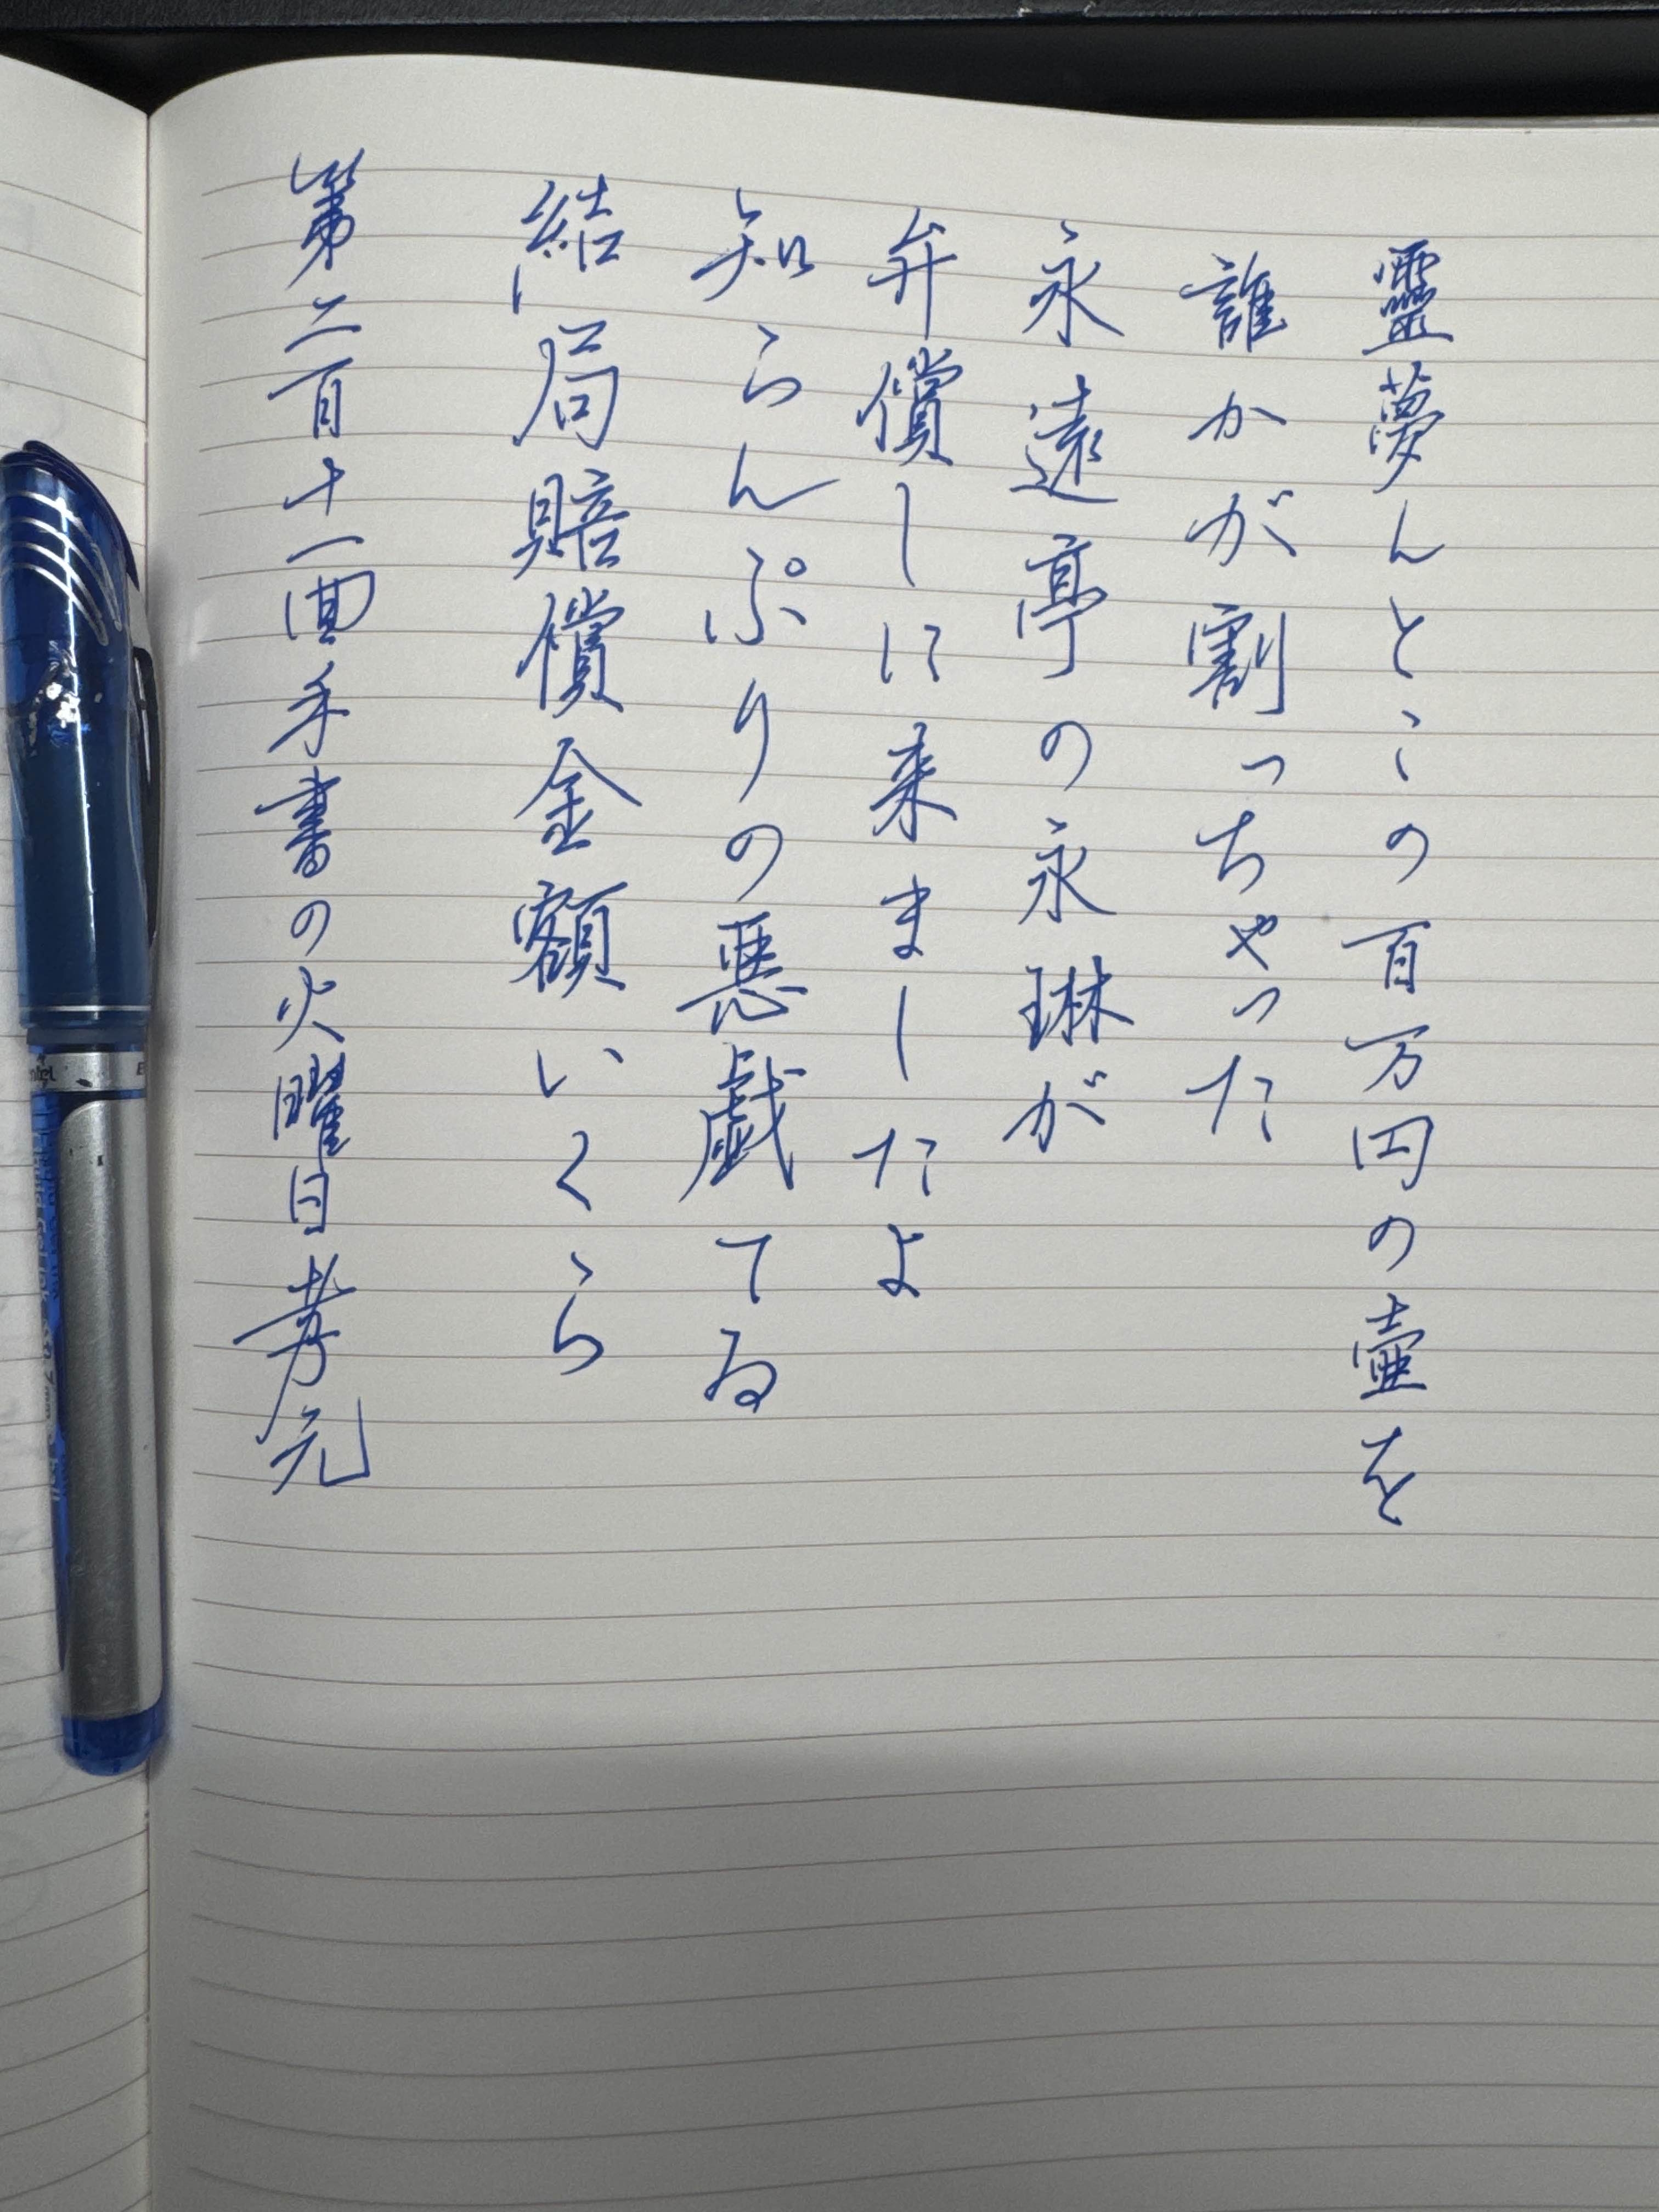 靈夢んとこの百万円の壷を
誰かが割っちゃった
永遠亭の永琳が
弁償しに来ましたよ
知らんぷりの悪戯てゐ
結局賠償金額いくら
第二百十一回手書の火曜日 芳元